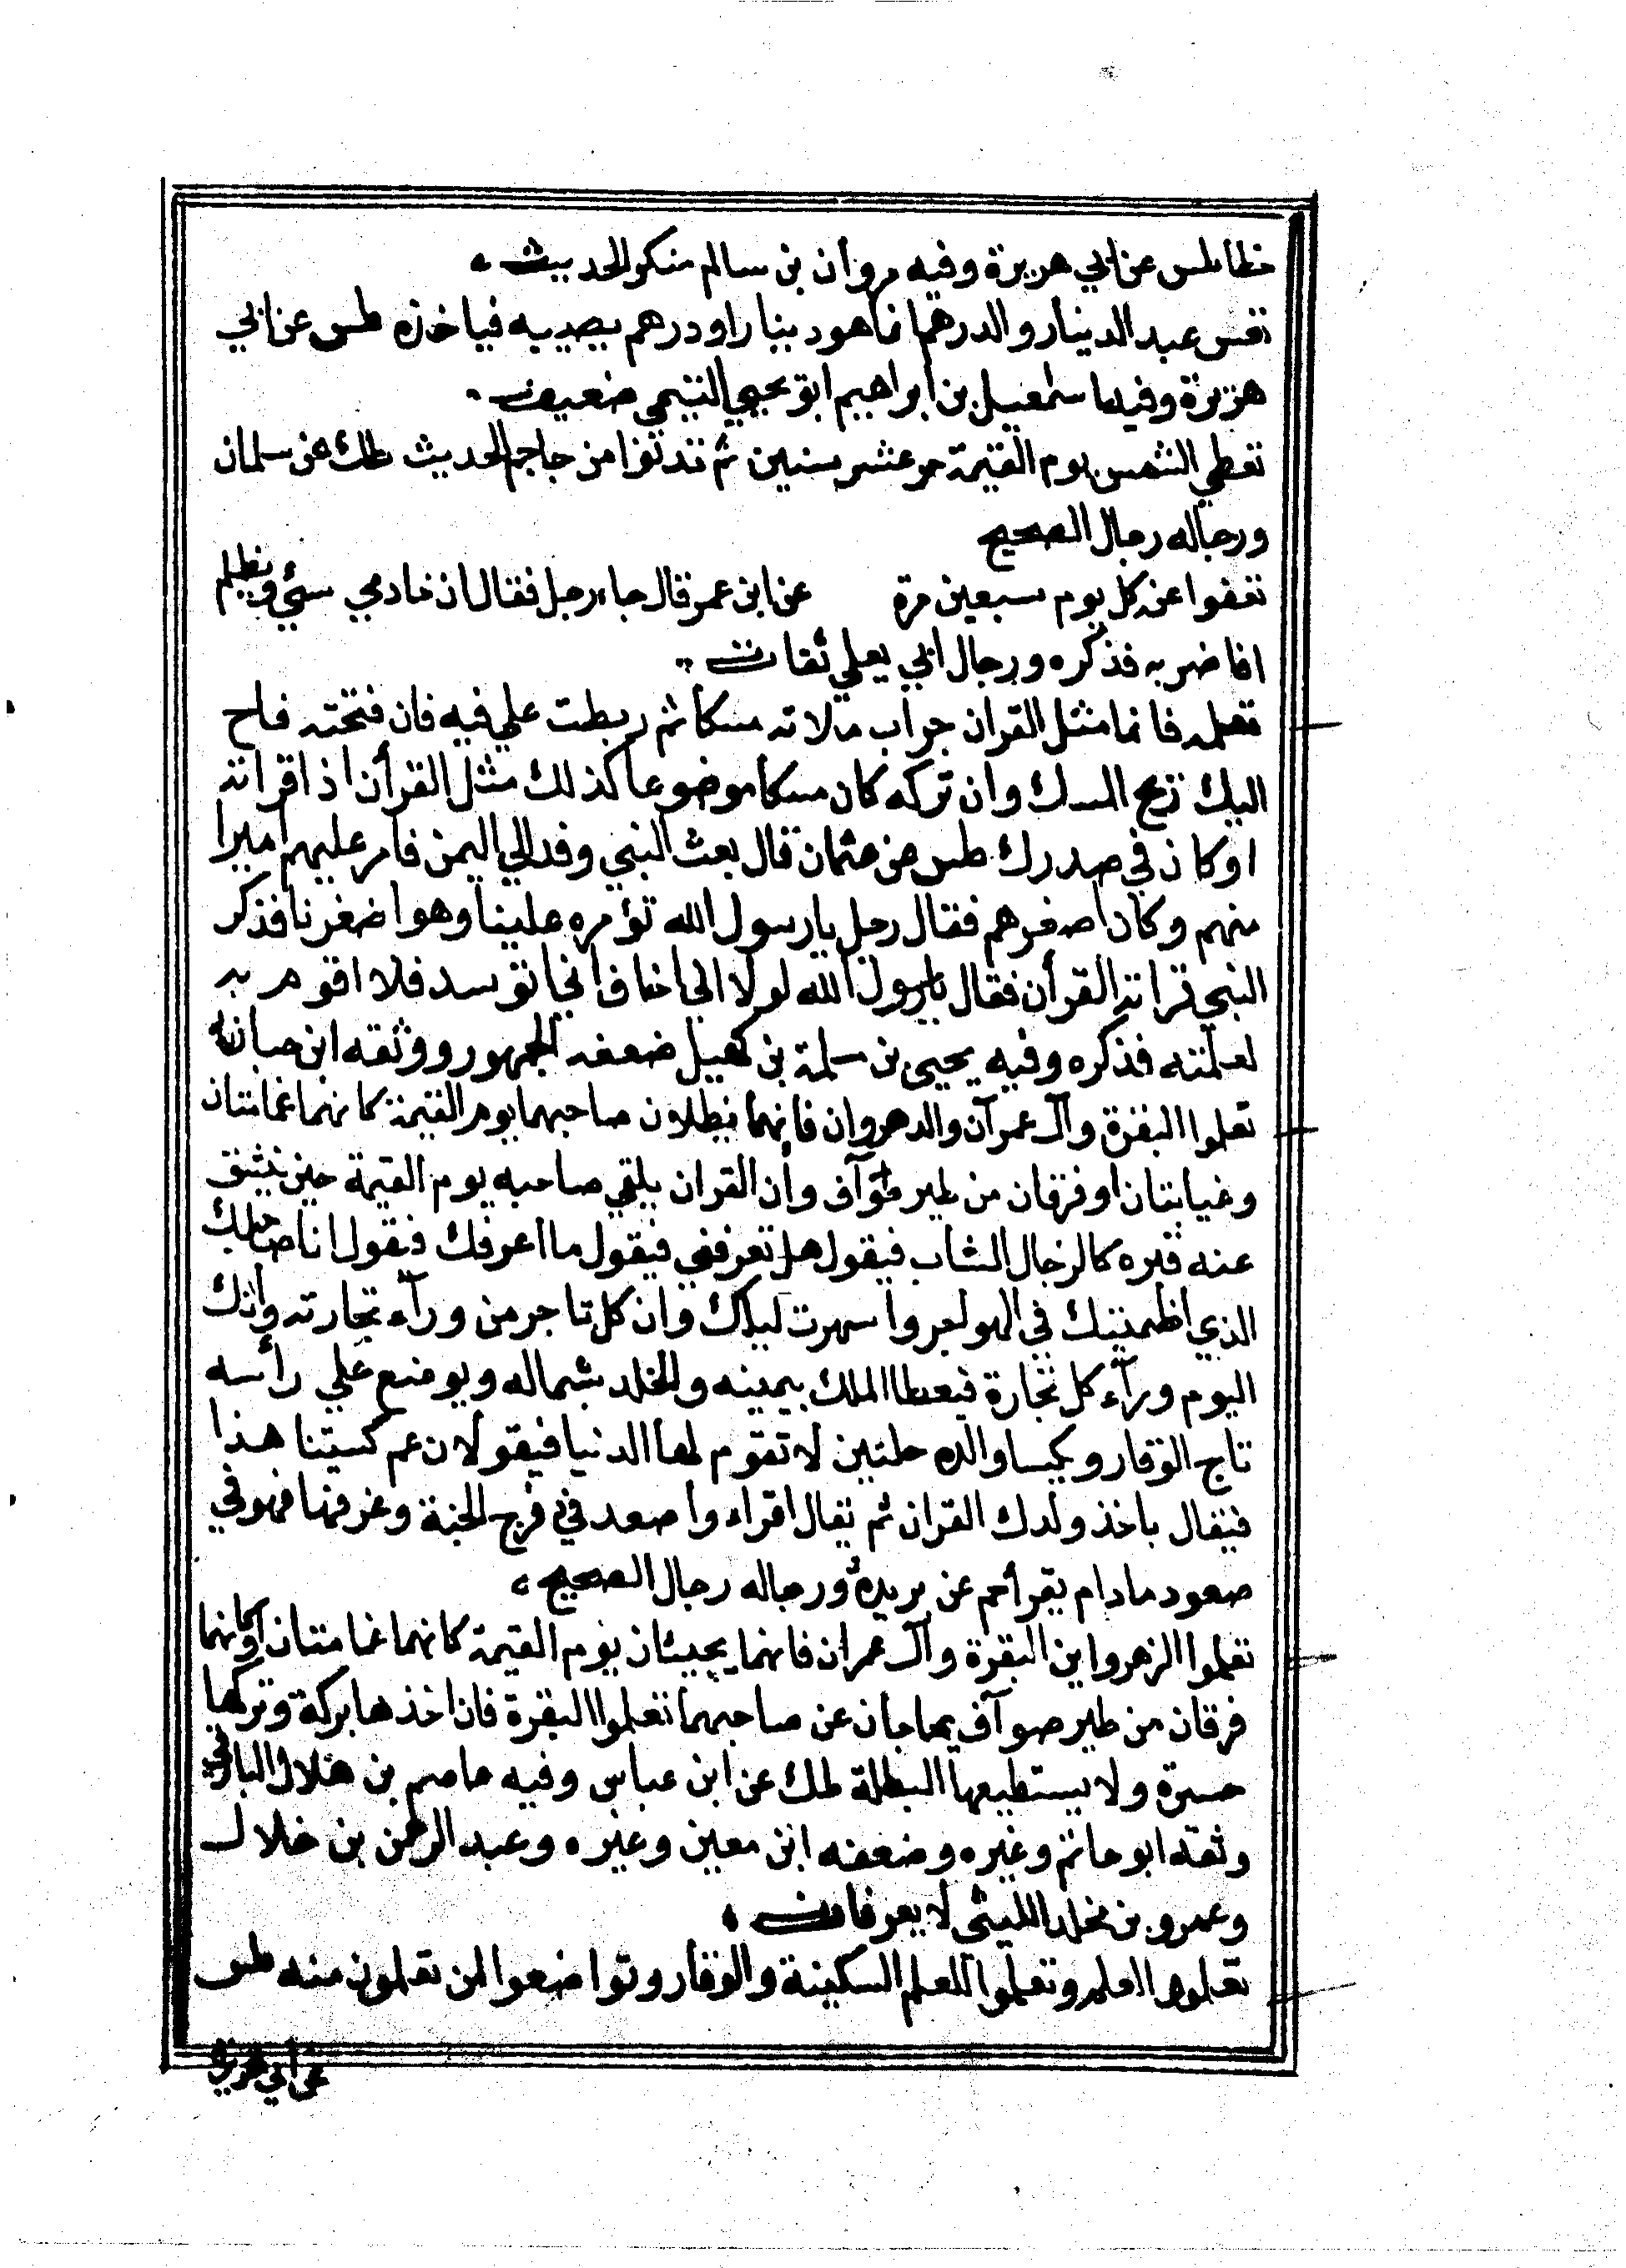 خطا طس عن ابي هريرة وفيه مروان بن سالم منكر الحديث
تعس عبد الدينار والدرهم انما هو دينار او درهم يصيبه فياخذه طس عن ابي
هريرة وفيه اسمعيل بن ابراهيم ابو يحيي التيمي ضعيف
تعطي الشمس يوم القيمة حر عشر سنين ثم تدنوا من جاجم الحديث طك عن سلمان
ورجاله رجال الصحيح
تعفوا عنه كل يوم سبعين مرة عن ابن عمر قال جاء رجل فقال ان خادمي سئ ويظلم
افاضربه فذكره ورجال ابي يعلي ثقات
تعلمه فانما مثل القران جراب ملاته مسكا ثم ربطت علي فيه فان فتحته فاح
اليك ريح المسك وان تركه كان مسكا موضوعا كذلك مثل القرأن اذا قراته
او كان في صدرك طس عن عثمان قال بعث النبي وفدا الي اليمن فامر عليهم اميرا
منهم وكان اصغرهم فقال رجل يا رسول الله تؤمره علينا وهو اصغرنا فذكر
النبي قراته القرأن فقال يا رسول الله لولا اني اخاف اني اتوسد فلا اقوم به
لعلمته فذكره وفيه يحيى بن سلمة بن كهيل ضعفه الجمهور ووثقه ابن حبان
تعلموا البقرة وآل عمرآن والدهروان فانهما يظلان صاحبهما يوم القيمة كانهما غمامتان
وغيابتان او فرقان من طير صوآف وأن القران يلقي صاحبه يوم القيمة حين ينشق
عنه قبره كالرجال الشاب فيقول هل تعرفني فيقول ما اعرفك فيقول انا صاحبك
الذي اظمئتيك في الهولجر واسهرت ليلك وان كل تاجر من ورآء تجارته وانك
اليوم ورآء كل تجارة فيعطا الملك بيمينه والخلد بشماله ويوضع علي رأسه
تاج الوقار ويكسا والده حلتين لا تقوم لها الدنيا فيقولان عم كسيتنا هذا
فيقال باخذ ولدك القران ثم يقال اقراء واصعد في درج الجنة وغرفها فهو في
صعود مادام يقرأ حم عن بريدة ورجاله رجال الصحيح
تعلموا الزهروابن البقرة وآل عمران فانهما يجيئان يوم القيمة كانهما غمامتان اوكانهما
فرقان من طير صوآف يحاجان عن صاحبهما تعلموا البقرة فان اخذها بركة وتركها
حسرة ولا يستطيعها البطلة طك عن ابن عباس وفيه عاصم بن هلال البارقي
وثقه ابو حاتم وغيره وضعفه ابن معين وغيره وعبد الرحمن بن خلال
وعمرو بن مخلد الليثي لا يعرفا
تعلموا العلم وتعلموا للعلم السكينة والوقار وتواضعوا لمن تعلمون منه طس
عن ابي هريرة